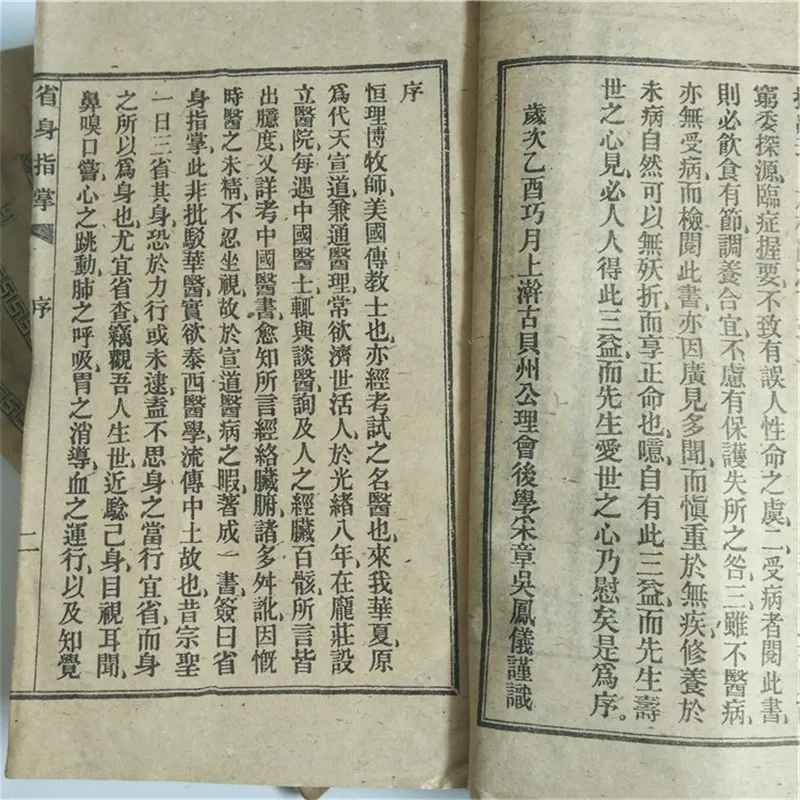 窮委探源臨症握要不致有誤人性命之虞二受病者閱此書
則必飲食有節調養合宜不慮有保護失所之咎三雖不醫病
亦無受病而檢閱此書亦因廣見多聞而慎重於無疾修養於
未病自然可以無殀折而享正命也噫自有此三益而先生壽
世之心見必人人得此三益而先生愛世之心乃慰矣是爲序。
歲次乙酉巧月上澣古貝州公理會後學宋章吳鳳儀謹識
序
恒理博牧師美國傳教士也亦經考試之名醫也來我華夏原
爲代天宣道兼通醫理常欲濟世活人於光緒八年在龐莊設
立醫院每遇中國醫士輒與談醫詢及人之經臟百骸所言皆
出臆度又詳考中國醫書愈知所言經絡臟腑諸多舛訛因慨
時醫之未精不忍坐視故於宣道醫病之暇著成一書簽曰省
身指掌此非批駁華醫實欲泰西醫學流傳中土故也昔宗聖
一日三省其身恐於力行或未逮蓋不思身之當行宜省而身
之所以爲身也尤宜省查竊觀吾人生世近騐己身目視耳聞
鼻嗅口嘗心之跳動肺之呼吸胃之消導血之運行以及知覺
省身指掌 序 二